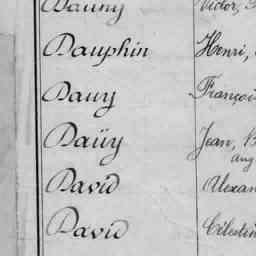 Dauny Victor,
Dauphin Henri,
Dauy François
Daüy Jean, B
Aug
David Alexan
David Célestin